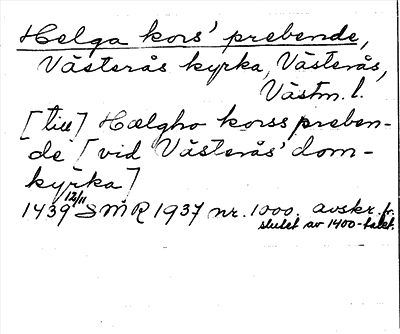 Helga kors' prebende,
Västerås kyrka, Västerås,
Västm. l.
[till] Hælgho korss preben-
de [vid Västerås' dom-
kyrka]
1439 12/11 SMR 1937 nr. 1000. avskr. fr.
slutet av 1400-talet.